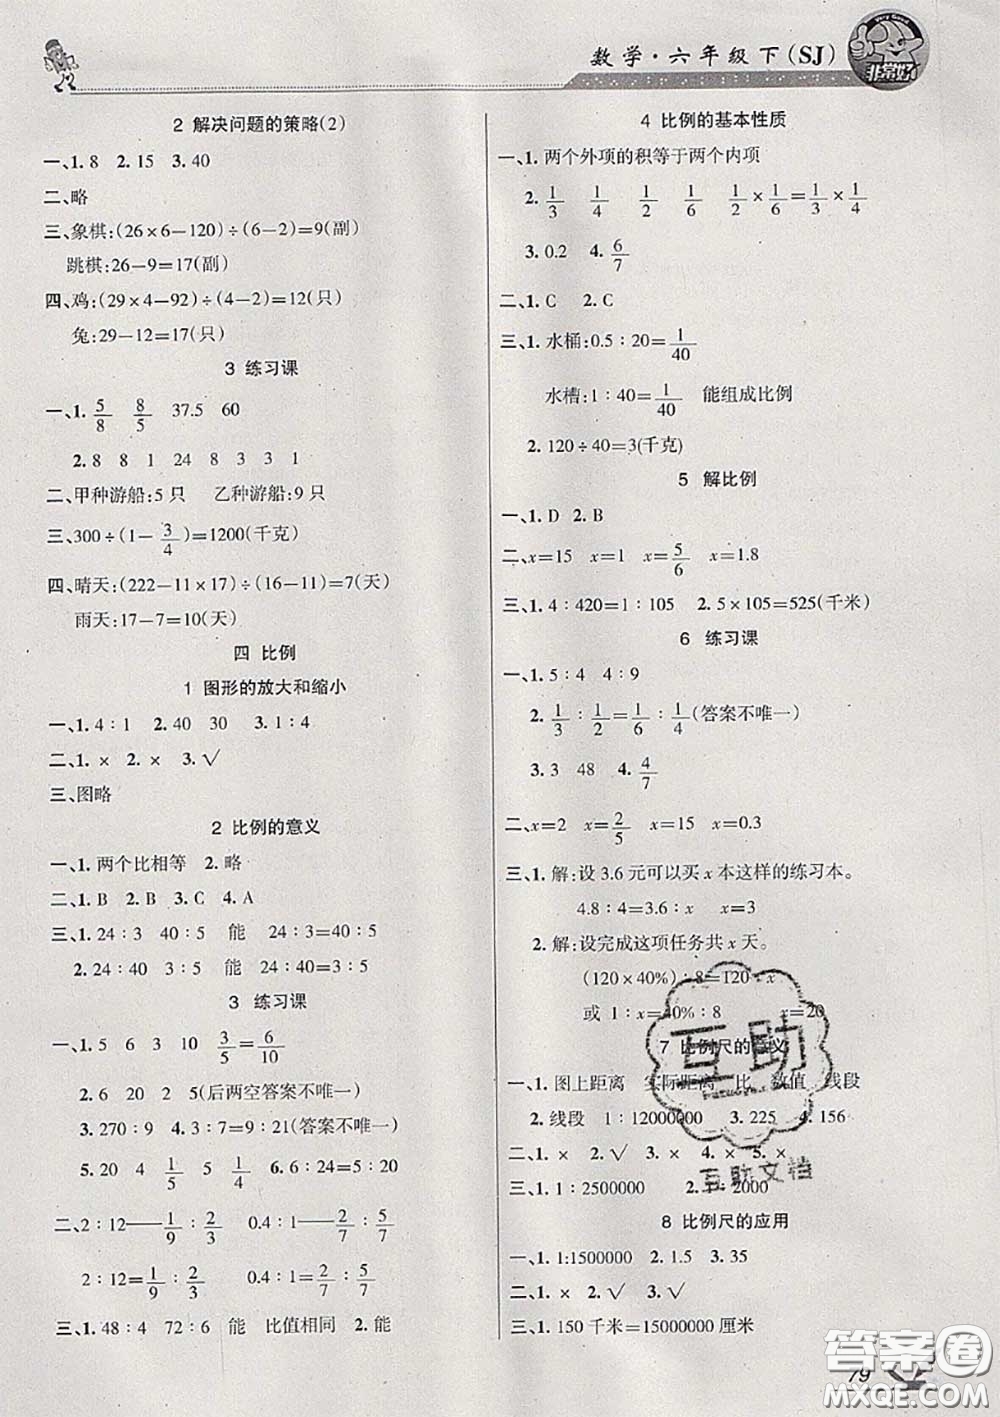 数学·六年级下(SJ)
Very Good
非常好
2 解决问题的策略(2)
一、1. 8 2. 15 3. 40
二、略
三、象棋:(26×6−120)÷(6−2)=9(副)
跳棋:26−9=17(副)
四、鸡:(29×4−92)÷(4−2)=12(只)
兔:29−12=17(只)
3 练习课
一、1. 5/8 8/5 37.5 60
2. 8 8 1 24 8 3 3 1
二、甲种游船:5 只 乙种游船:9 只
三、300÷(1−3/4)=1200(千克)
四、晴天:(222−11×17)÷(16−11)=7(天)
雨天:17−7=10(天)
四 比例
1 图形的放大和缩小
一、1. 4∶1 2. 40 30 3. 1∶4
二、1. × 2. × 3. √
三、图略
2 比例的意义
一、1. 两个比相等 2. 略
二、1. B 2. B 3. C 4. A
三、1. 24∶3 40∶5 能 24∶3=40∶5
2. 24∶40 3∶5 能 24∶40=3∶5
3 练习课
一、1. 5 6 3 10 3/5=6/10
2. 6 20 2 5(后两空答案不唯一)
3. 270∶9 4. 3∶7=9∶21(答案不唯一)
5. 20 4 1/5 1/4 6. 6∶24=5∶20
二、2∶12——1/9∶2/3 0.4∶1——2/7∶5/7
2∶12=1/9∶2/3 0.4∶1=2/7∶5/7
三、1. 48∶4 72∶6 能 比值相同 2. 能
4 比例的基本性质
一、1. 两个外项的积等于两个内项
2. 1/3 1/4 1/2 1/6 1/2×1/6=1/3×1/4
3. 0.2 4. 6/7
二、1. C 2. C
三、1. 水桶:0.5∶20=1/40
水槽:1∶40=1/40 能组成比例
2. 120÷40=3(千克)
5 解比例
一、1. D 2. B
二、x=15 x=1 x=5/6 x=1.8
三、1. 4∶420=1∶105 2. 5×105=525(千米)
6 练习课
一、1. 5∶4 4∶9
2. 1/3∶1/2=1/6∶1/4(答案不唯一)
3. 3 48 4. 4/7
二、x=2 x=2/5 x=15 x=0.3
三、1. 解:设 3.6 元可以买 x 本这样的练习本。
4.8∶4=3.6∶x x=3
2. 解:设完成这项任务共 x 天。
(120×40%)∶8=120∶x
或 1∶x=40%∶8 x=20
7 比例尺的意义
一、1. 图上距离 实际距离 比 数值 线段
2. 线段 1∶12000000 3. 225 4. 156
二、1. × 2. √ 3. × 4. × 5. ×
三、1. 1∶2500000 2. 1∶2000
8 比例尺的应用
一、1. 1:1500000 2. 1.5 3. 35
二、1. × 2. √ 3. √
三、1. 150 千米=15000000 厘米
互助
互助文档
79
答案圈
MXQE.COM